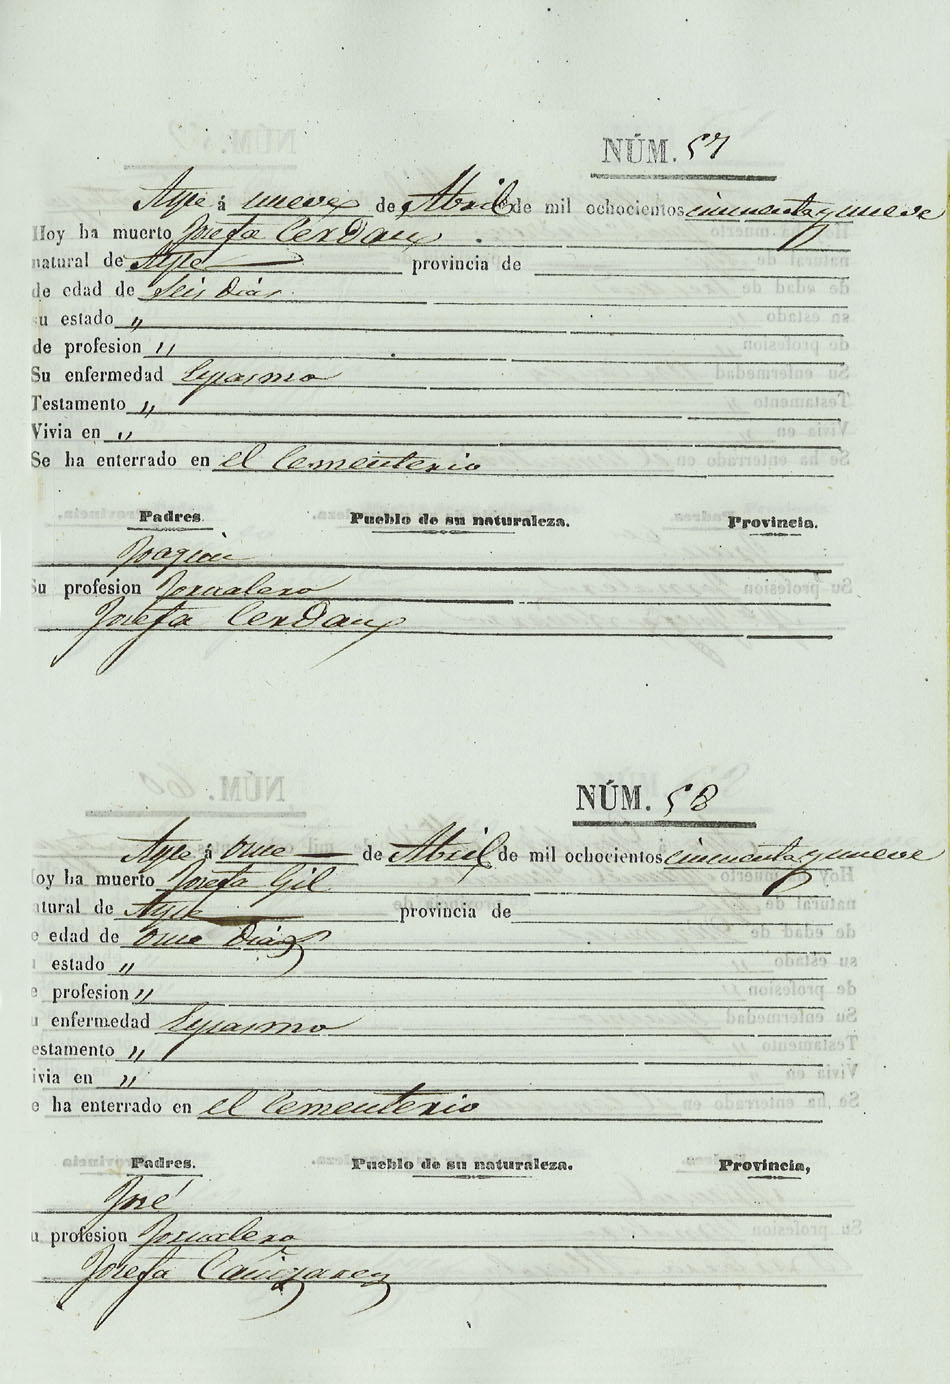 NÚM. 57
Aspe á nueve de Abril de mil ochocientos cincuenta y nueve
Hoy ha muerto Josefa Cerdan
natural de Aspe provincia de
de edad de Seis Dias
su estado "
de profesion "
Su enfermedad Espasmo
Testamento "
Vivia en "
Se ha enterrado en el Cementerio
Padres. Pueblo de su naturaleza. Provincia.
Joaquin
Su profesion Jornalero
Josefa Cerdan
NÚM. 58
Aspe á once de Abril de mil ochocientos cincuenta y nueve
oy ha muerto Josefa Gil
atural de Aspe provincia de
e edad de once Dias
estado "
e profesion "
u enfermedad Espasmo
estamento "
ivia en "
e ha enterrado en el Cementerio
Padres. Pueblo de su naturaleza. Provincia,
José
u profesion Jornalero
Josefa Cañizares